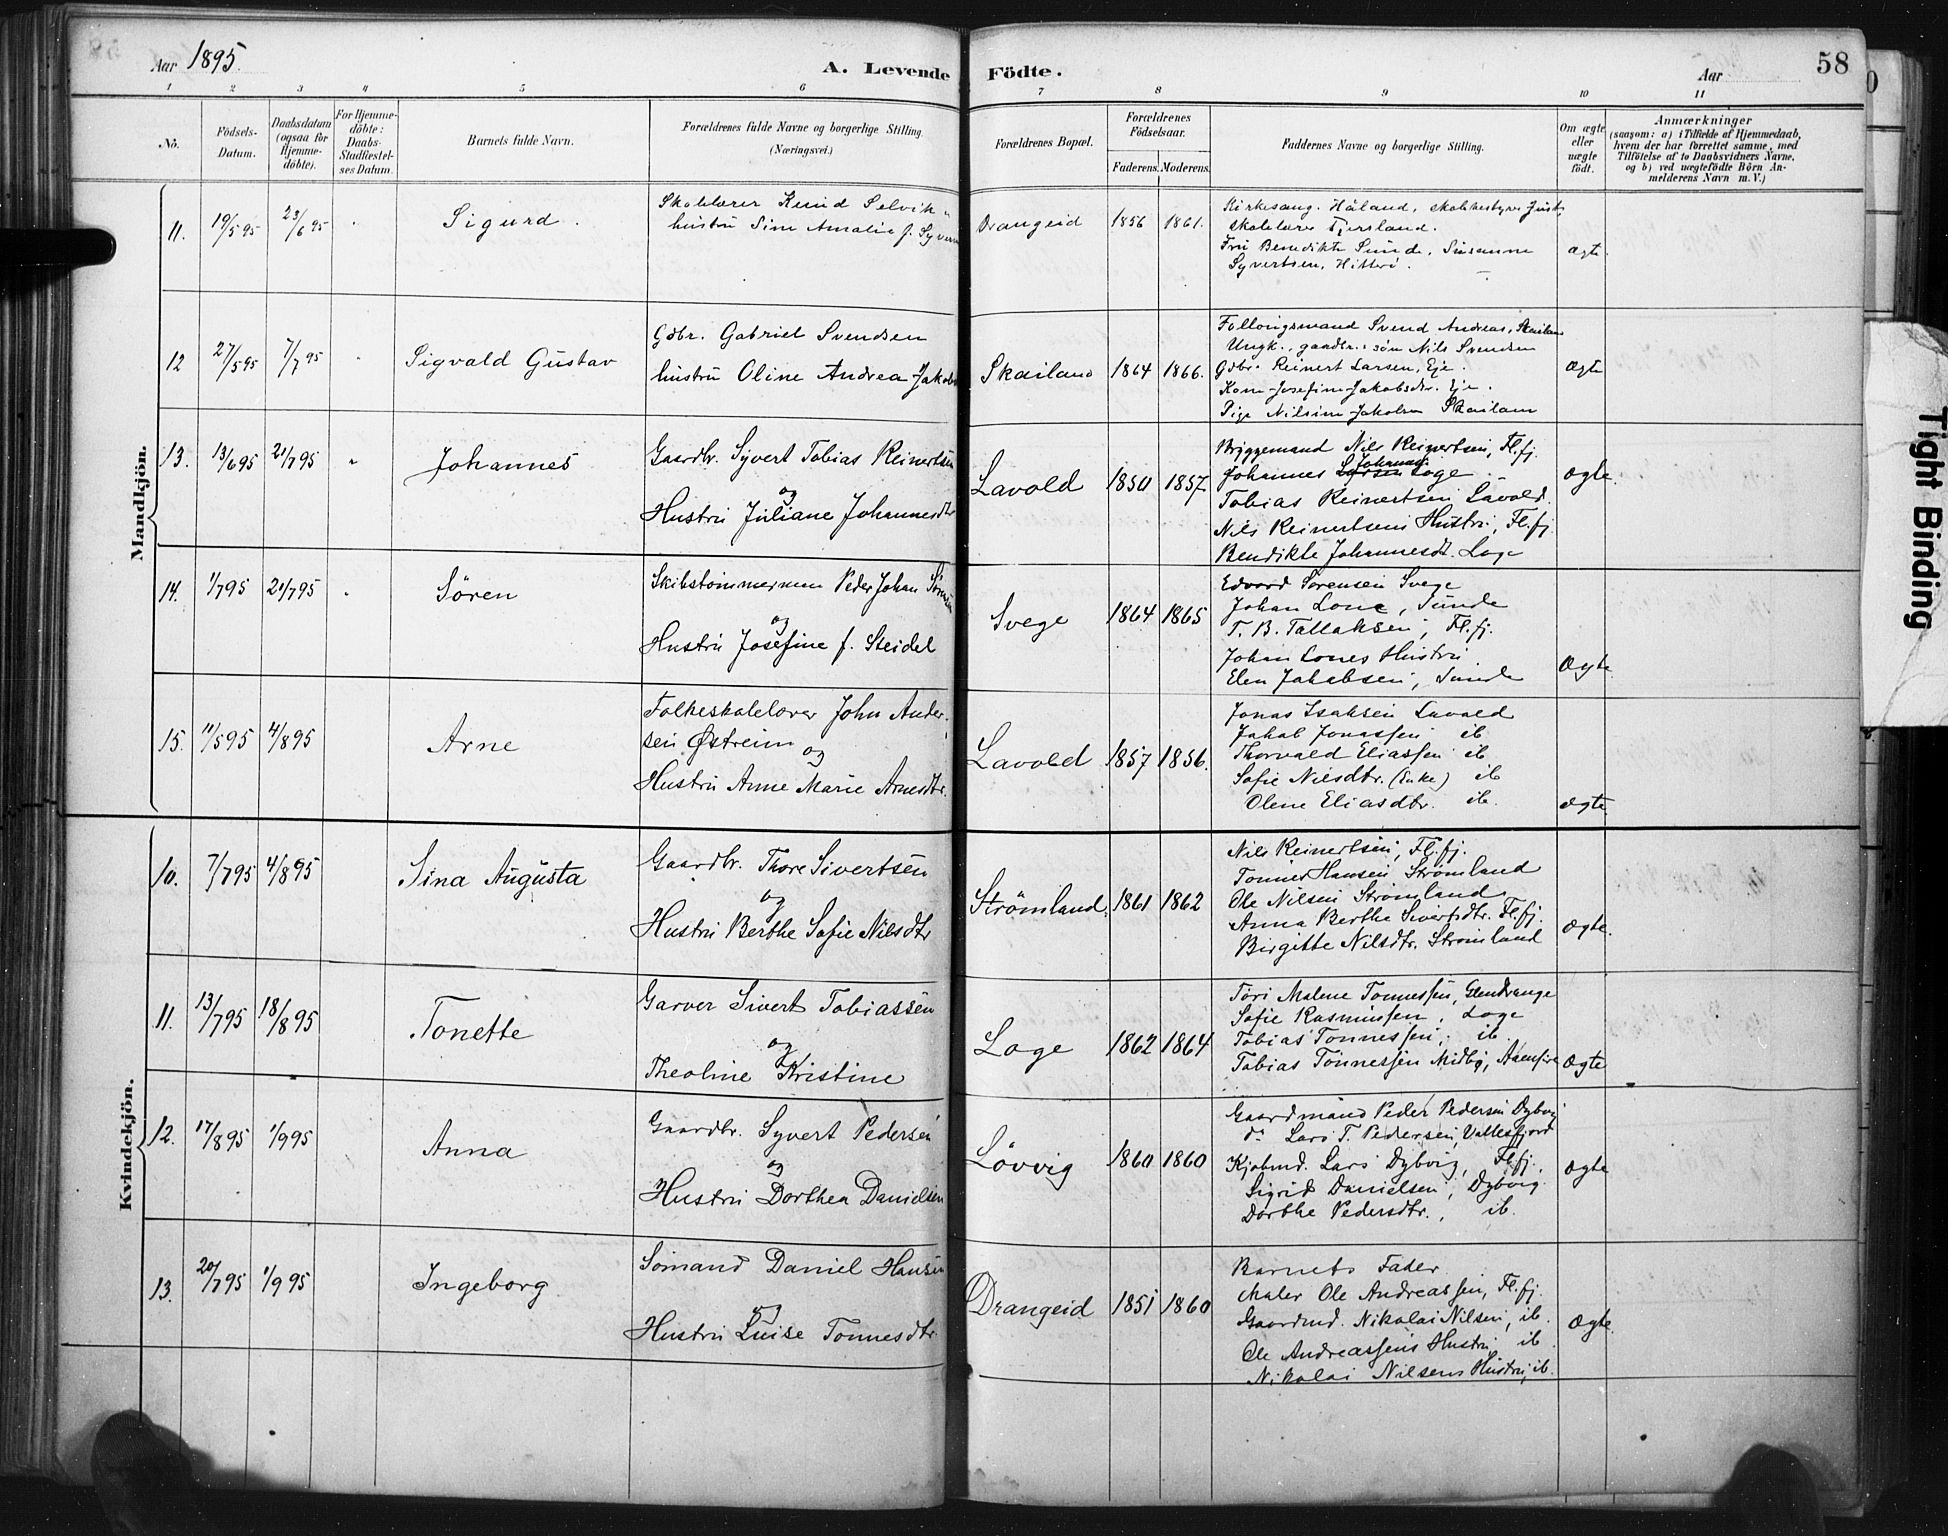 Aar 1895.
A. Levende Födte.
Aar
58
1 2 3 4 5 6 7 8 9 10 11
No.
Födsels-Datum.
Daabsdatum (ogsaa for Hjemme-döbte).
For Hjemme-döbte: Daabs-Stadfæstel-ses Datum.
Barnets fulde Navn.
Forældrenes fulde Navne og borgerlige Stilling.
(Næringsvei.)
Forældrenes Bopæl.
Forældrenes Födselsaar.
Faderens. Moderens.
Faddernes Navne og borgerlige Stilling.
Om ægte eller uægte födt.
Anmærkninger
(saasom: a) i Tilfælde af Hjemmedaab,
hvem der har forrettet samme, med
Tilföielse af to Daabsvidners Navne,
og b) ved uægtefödte Börn An-
melderens Navn m. V.)
Mandkjön.
11. 19/5 95 23/6 95 " Sigurd.
Skolelærer Knud Selvik
hustru Sine Amalie f. Syverts
Drangeid 1856 1861.
Kirkesang. Håland, skolebestyrer Just,
skolelærer Tjersland.
Fru Benedikte Sunde, Susanne
Syvertsen, Hitterö.
ægte.
12 27/5 95 7/7 95 " Sigvald Gustav
Gdbr. Gabriel Svendsen
hustru Oline Andrea Jakobs
Skailand 1864 1866.
Follougsmand Svend Andreas, Skailand
Ungk., gaardbr.: sön Nils Svendsen
Gdbr. Reinert Larsen, Eje.
Kone Josefine Jakobsdtr. Eje.
Pige Nilsine Jakobsen Skailand
ægte
13. 13/6 95 21/7 95 " Johannes
Gaardbr. Syvert Tobias Reinertsen
og
Hustru Juliane Johannesdtr
Lavold 1850 1857.
Bryggemand Nils Reinertsen, Fl.fj.
Johannes Larsen Johannes Loge
Tobias Reinertsen Lavold.
Nils Reinertsens Hustru, Fl.fj.
Bendikte Johannesdt. Loge
ægte.
14. 1/7 95 21/7 95 " Sören
Skibstömmermn Peder Johan Sörensen
og
Hustru Josefine f. Steidel
Svege 1864 1865
Edvard Sörensen Svege
Johan Lone, Sunde
T. B. Tallaksen, Fl.fj.
Johan Lones Hustru.
Elen Jakobsen, Sunde
Ægte.
15. 11/5 95 4/8 95 Arne
Folkeskolelærer John Ander-
sen Østreim og
Hustru Anne Marie Arnesdtr.
Lavold 1857 1856.
Jonas Isaksen Lavold
Jakob Jonassen ib
Thorvald Eliassen ib
Sofie Nilsdtr. (Enke) ib
Olene Eliasdtr. ib.
ægte.
Kvindekjön.
10. 7/7 95 4/8 95 Sina Augusta
Gaardbr. Thore Sivertsen
og
Hustru Berthe Sofie Nilsdtr
Strömland. 1861 1862
Nils Reinertsen, Fl.fj.
Tonner Hansen Strömland
Ole Nilsen Strömland
Anna Berthe Sivertsdtr. Fl.fj.
Birgitte Nilsdtr. Strömland
ægte.
11. 13/7 95 18/8 95 Tonette
Garver Sivert Tobiassen
og
Theoline Kristine
Loge 1862 1864
Tori Malene Tonnessen, Glendrange
Sofie Rasmussen, Loge
Tobias Tonnessen, ib.
Tobias Tönnessen Midbö, Aaensire
Ægte
12. 17/8 95 1/9 95 Anna
Gaardbr. Syvert Pedersen
og
Hustru Dorthea Danielsen
Lövvig 1860 1860
Gaardmand Peder Pedersen Dybvig
do Lars T. Pedersen, Vattesfjord
Kjöbmd. Lars Dybvig, Fl.fj.
Sigrid Danielsen, Dybvig.
Dorthe Pedersdtr., ib.
ægte
13. 20/7 95 1/9 95 Ingeborg
Sömand Daniel Hansen
og
Hustru Luise Tonnesdtr.
Drangeid 1851 1860
Barnets Fader
Maler Ole Andreassen, Fl.fj.
Gaardmd. Nikolai Nilsen, ib.
Ole Andreassens Hustru ib
Nikolai Nilsens Hustru, ib.
Ægte.
Tight Binding